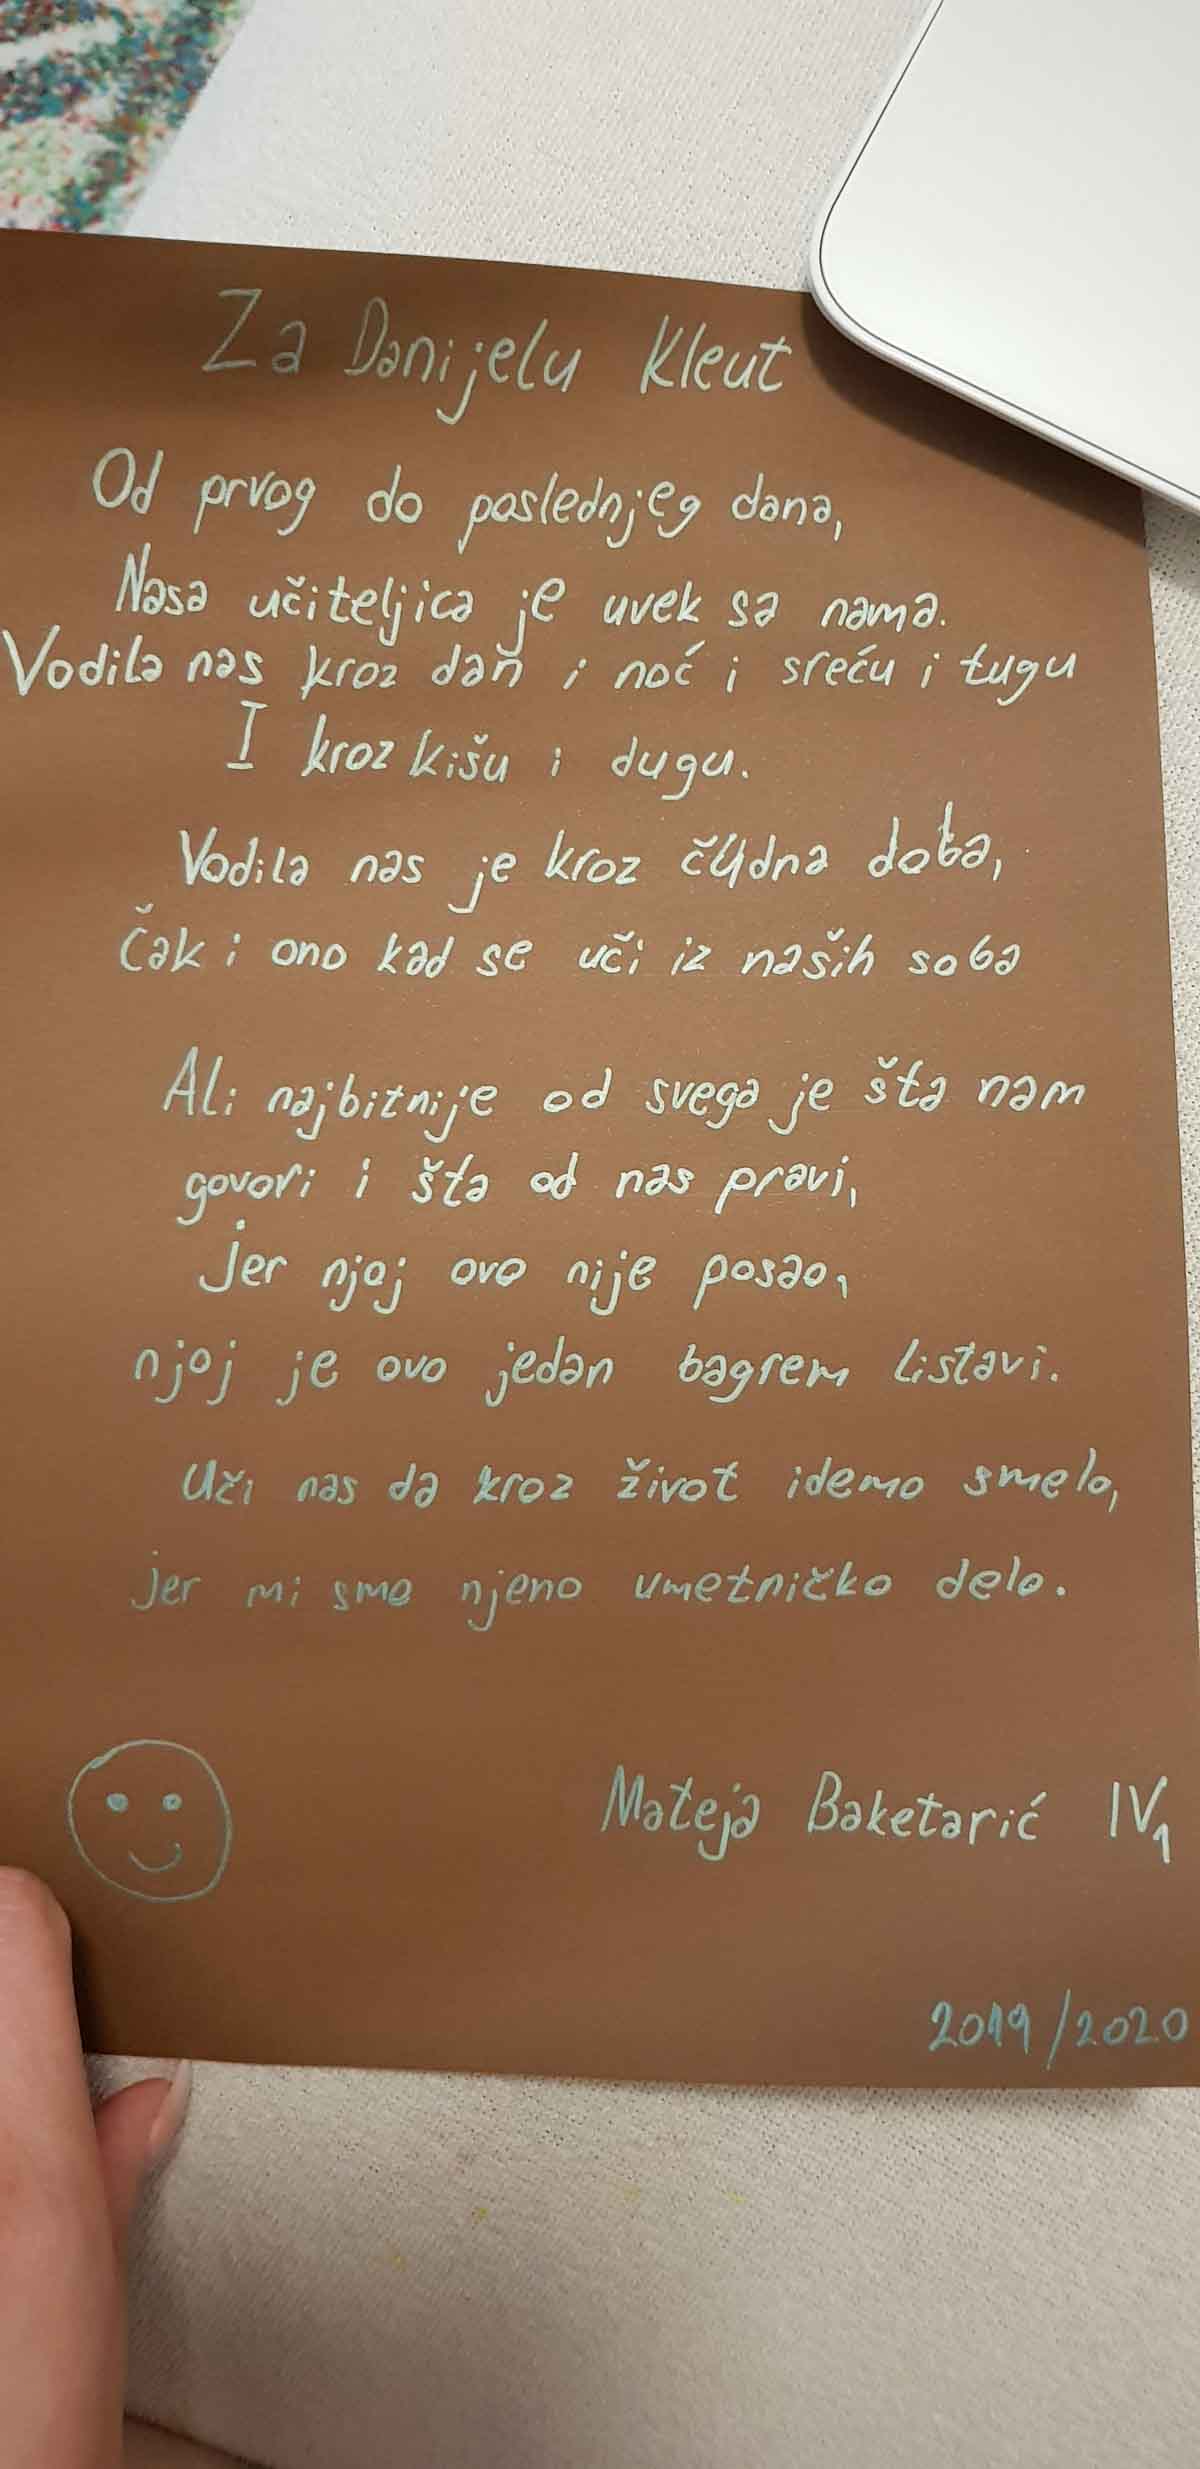 Za Danijelu Kleut
Od prvog do poslednjeg dana,
Nasa učiteljica je uvek sa nama.
Vodila nas kroz dan i noć i sreću i tugu
I kroz kišu i dugu.
Vodila nas je kroz čudna doba,
Čak i ono kad se uči iz naših soba
Ali najbitnije od svega je šta nam
govori i šta od nas pravi,
Jer njoj ovo nije posao,
njoj je ovo jedan bagrem listavi.
Uči nas da kroz život idemo smelo,
jer mi smo njeno umetničko delo.
Mateja Baketarić IV1
2019/2020